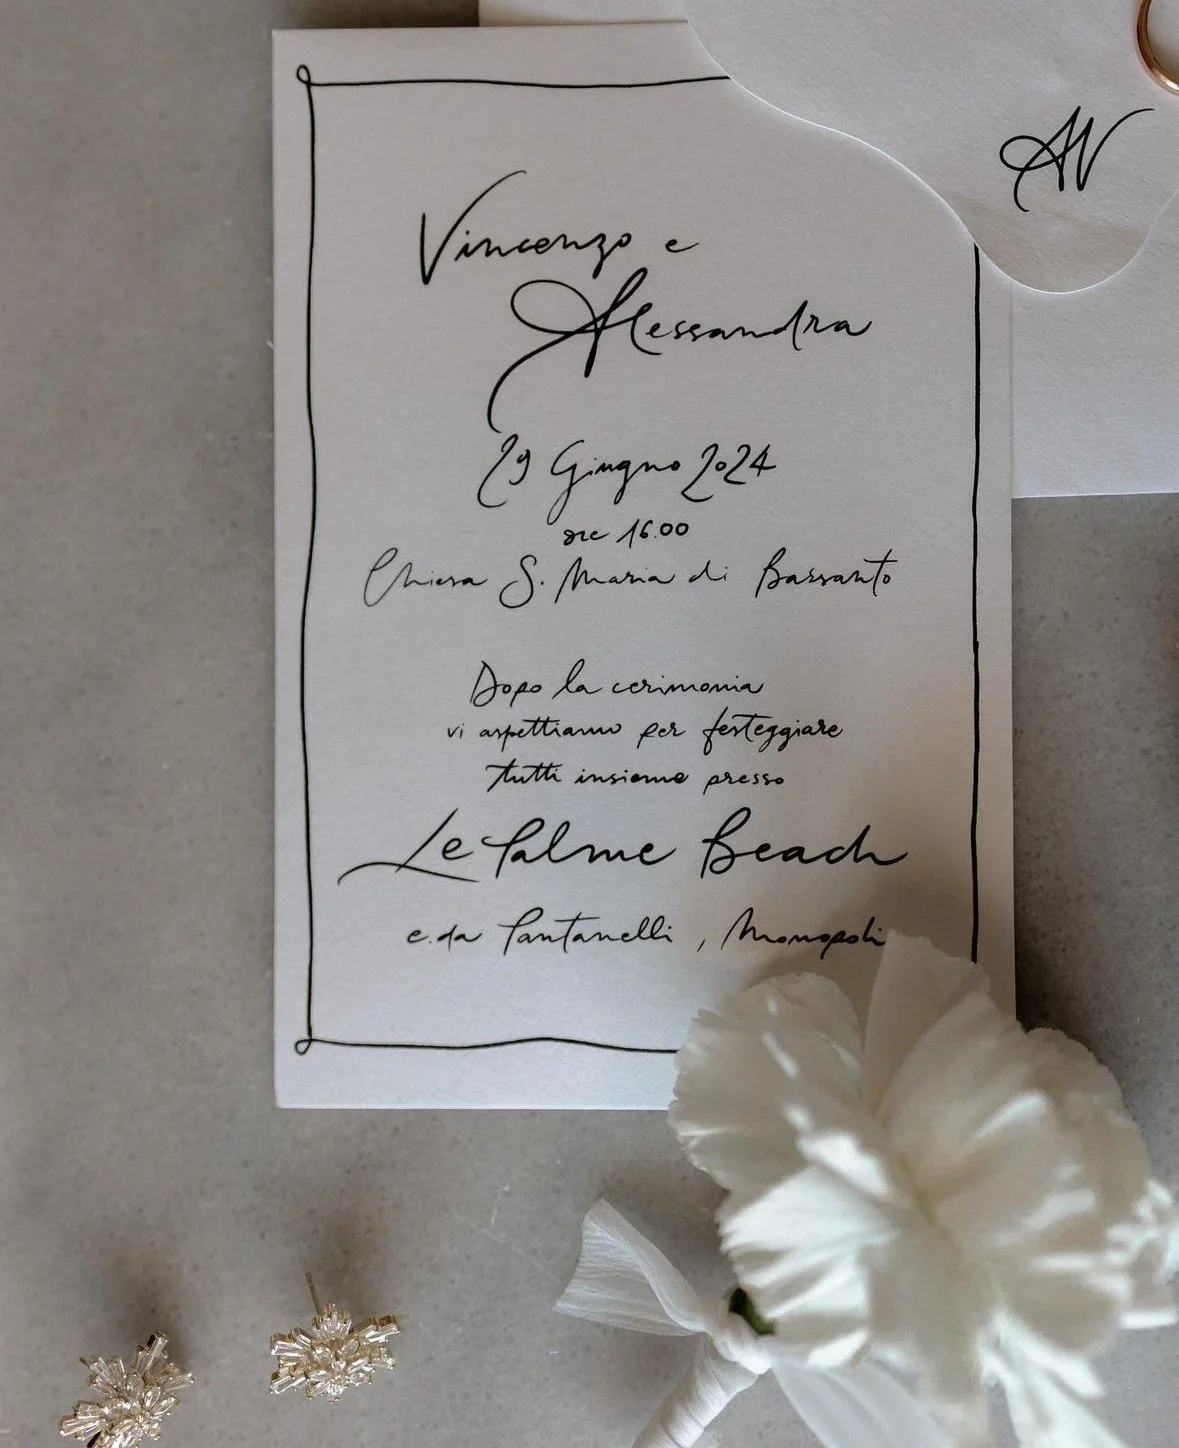 AV
Vincenzo e
Alessandra
29 Giugno 2024
ore 16.00
Chiesa S. Maria di Barsanto
Dopo la cerimonia
vi aspettiamo per festeggiare
tutti insieme presso
Le Palme Beach
c.da Pantanelli, Monopoli